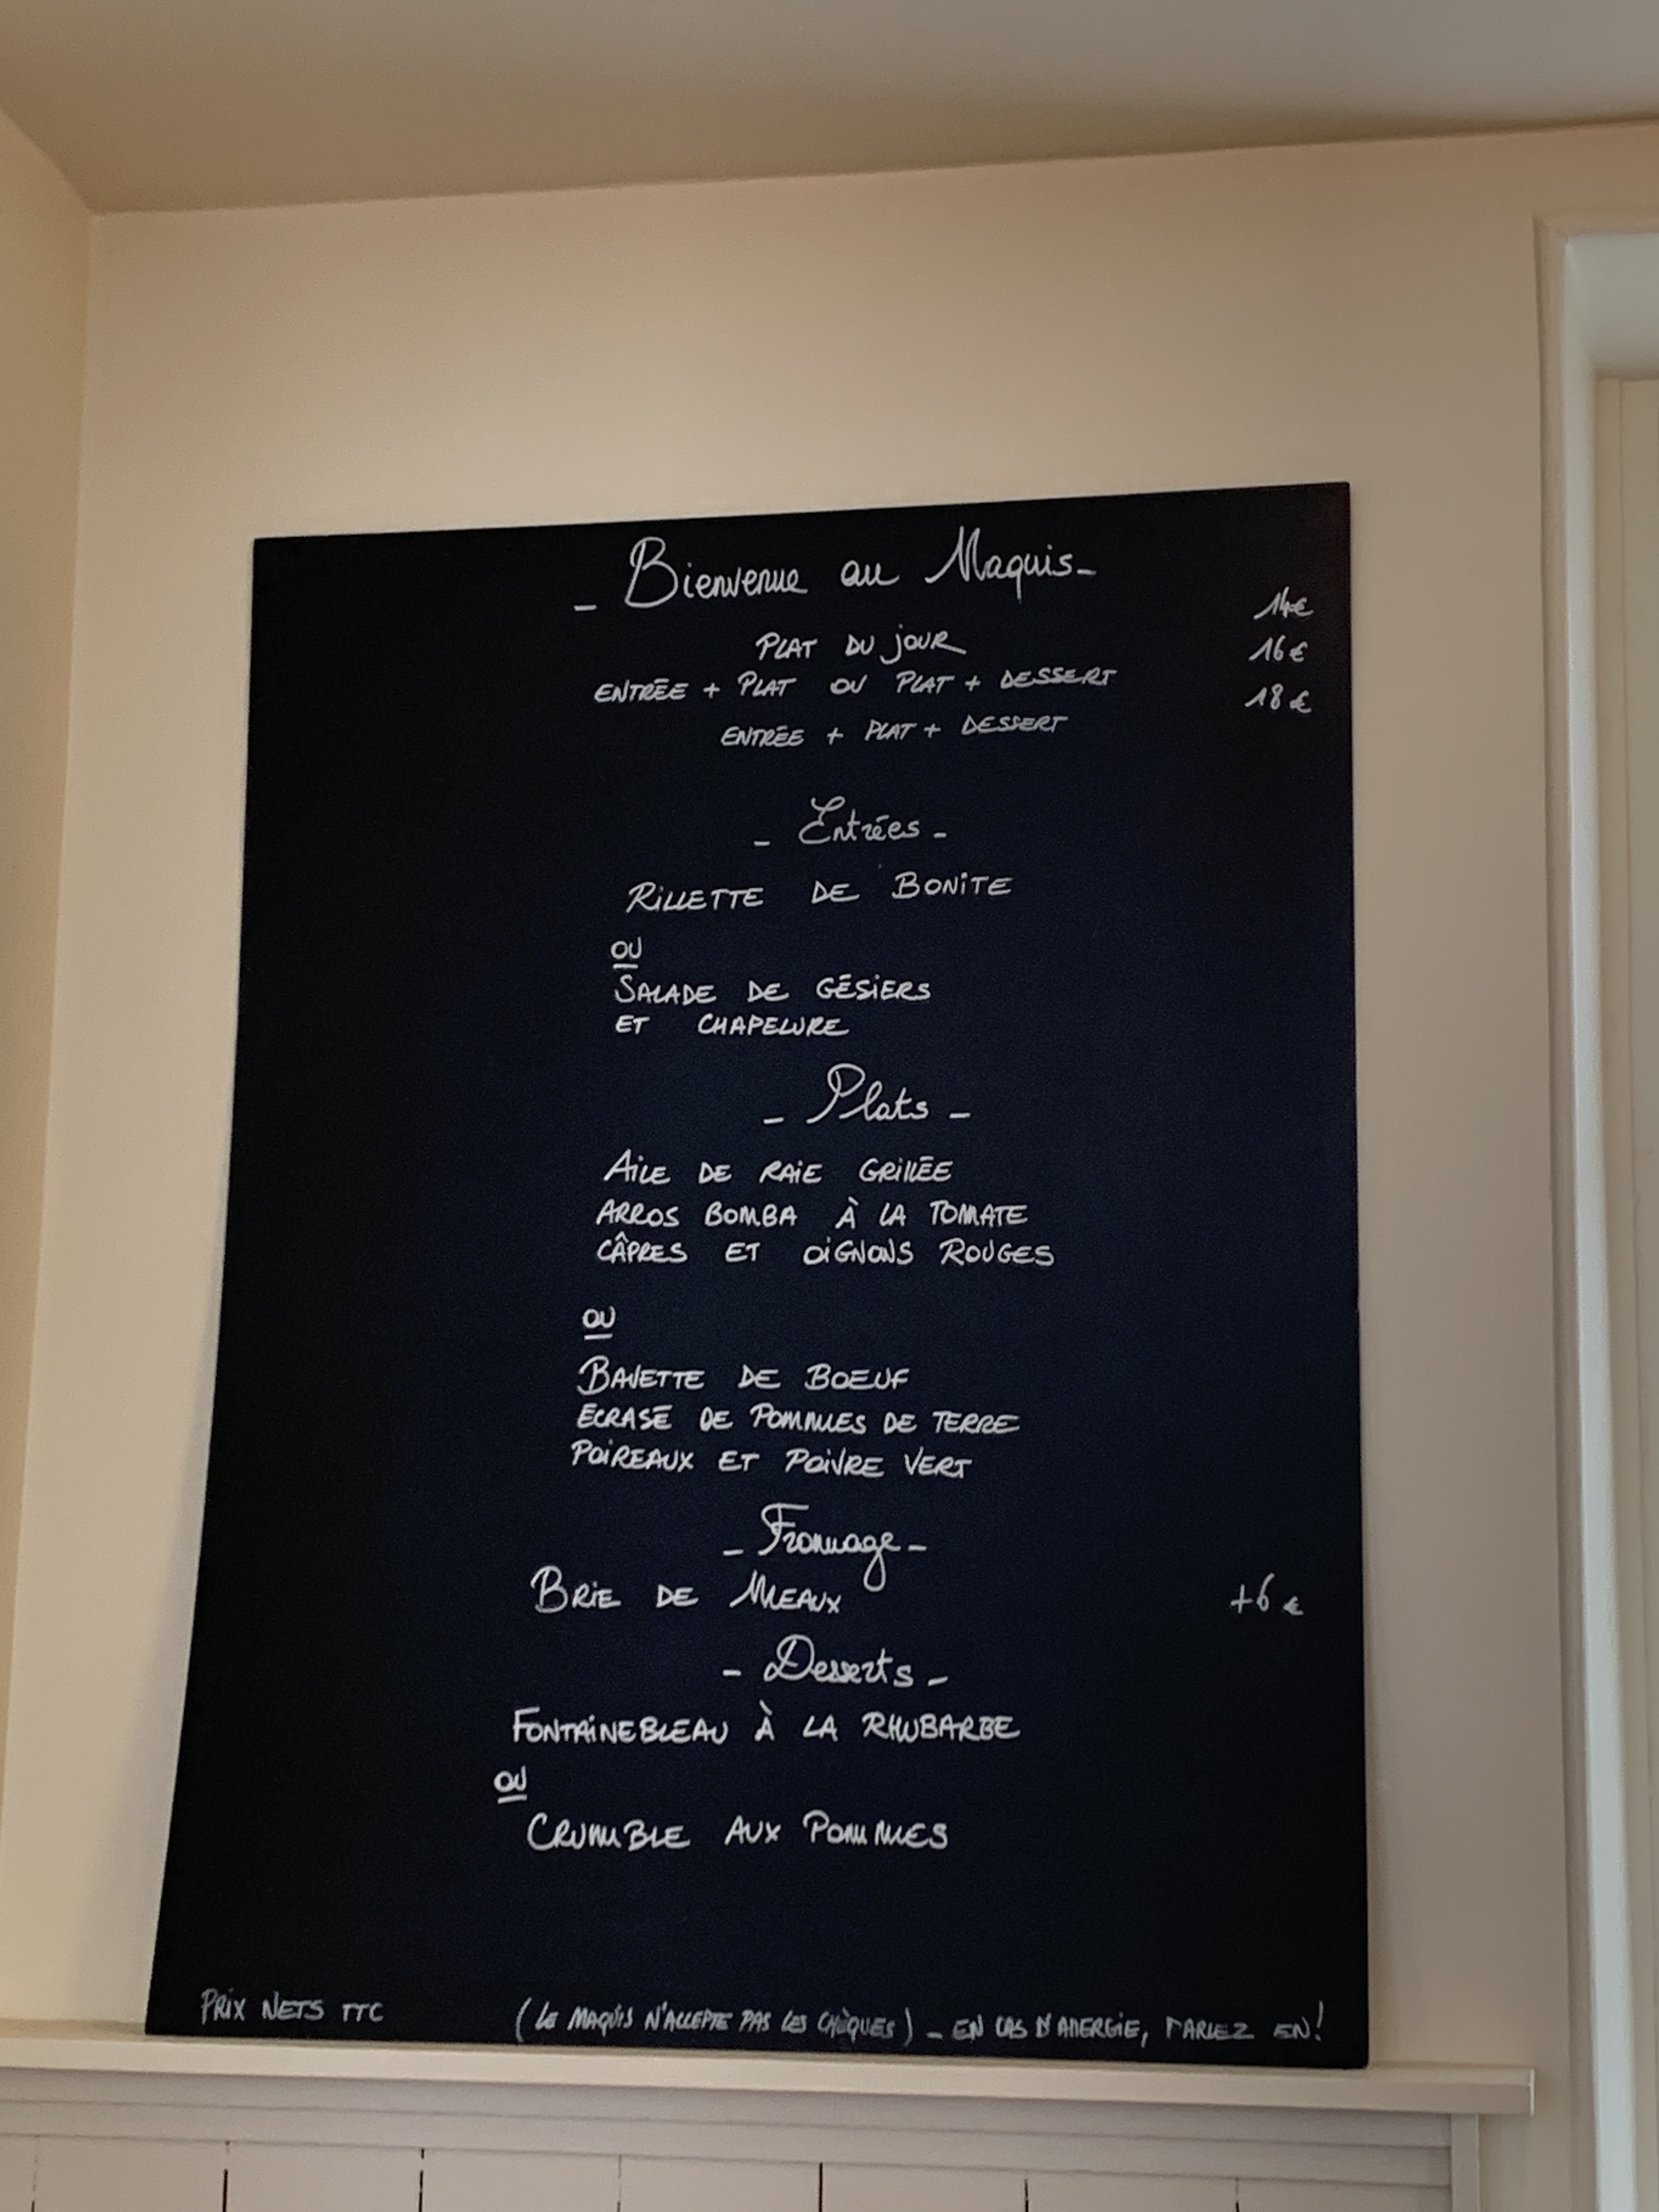 _ Bienvenue au Maquis_
14€
PLAT DU JOUR
16€
ENTRÉE + PLAT OU PLAT + DESSERT
18€
ENTRÉE + PLAT + DESSERT
_ Entrées _
RILLETTE DE BONITE
OU
SALADE DE GÉSIERS
ET CHAPELURE
_ Plats _
AILE DE RAIE GRILLÉE
ARROS BOMBA À LA TOMATE
CÂPRES ET OIGNONS ROUGES
OU
BAVETTE DE BOEUF
ECRASÉ DE POMMES DE TERRE
POIREAUX ET POIVRE VERT
_ Fromage _
BRIE DE MEAUX +6€
- Desserts -
FONTAINEBLEAU À LA RHUBARBE
OU
CRUMBLE AUX POMMES
PRIX NETS TTC (LE MAQUIS N'ACCEPTE PAS LES CHÈQUES) _ EN CAS D'ALLERGIE, PARLEZ EN!